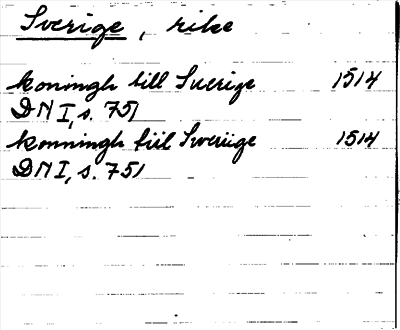 Sverige, rike
koningh till Suerige 1514
DN I, s. 751
konningh tiil Sweriige 1514
DN I, s. 751